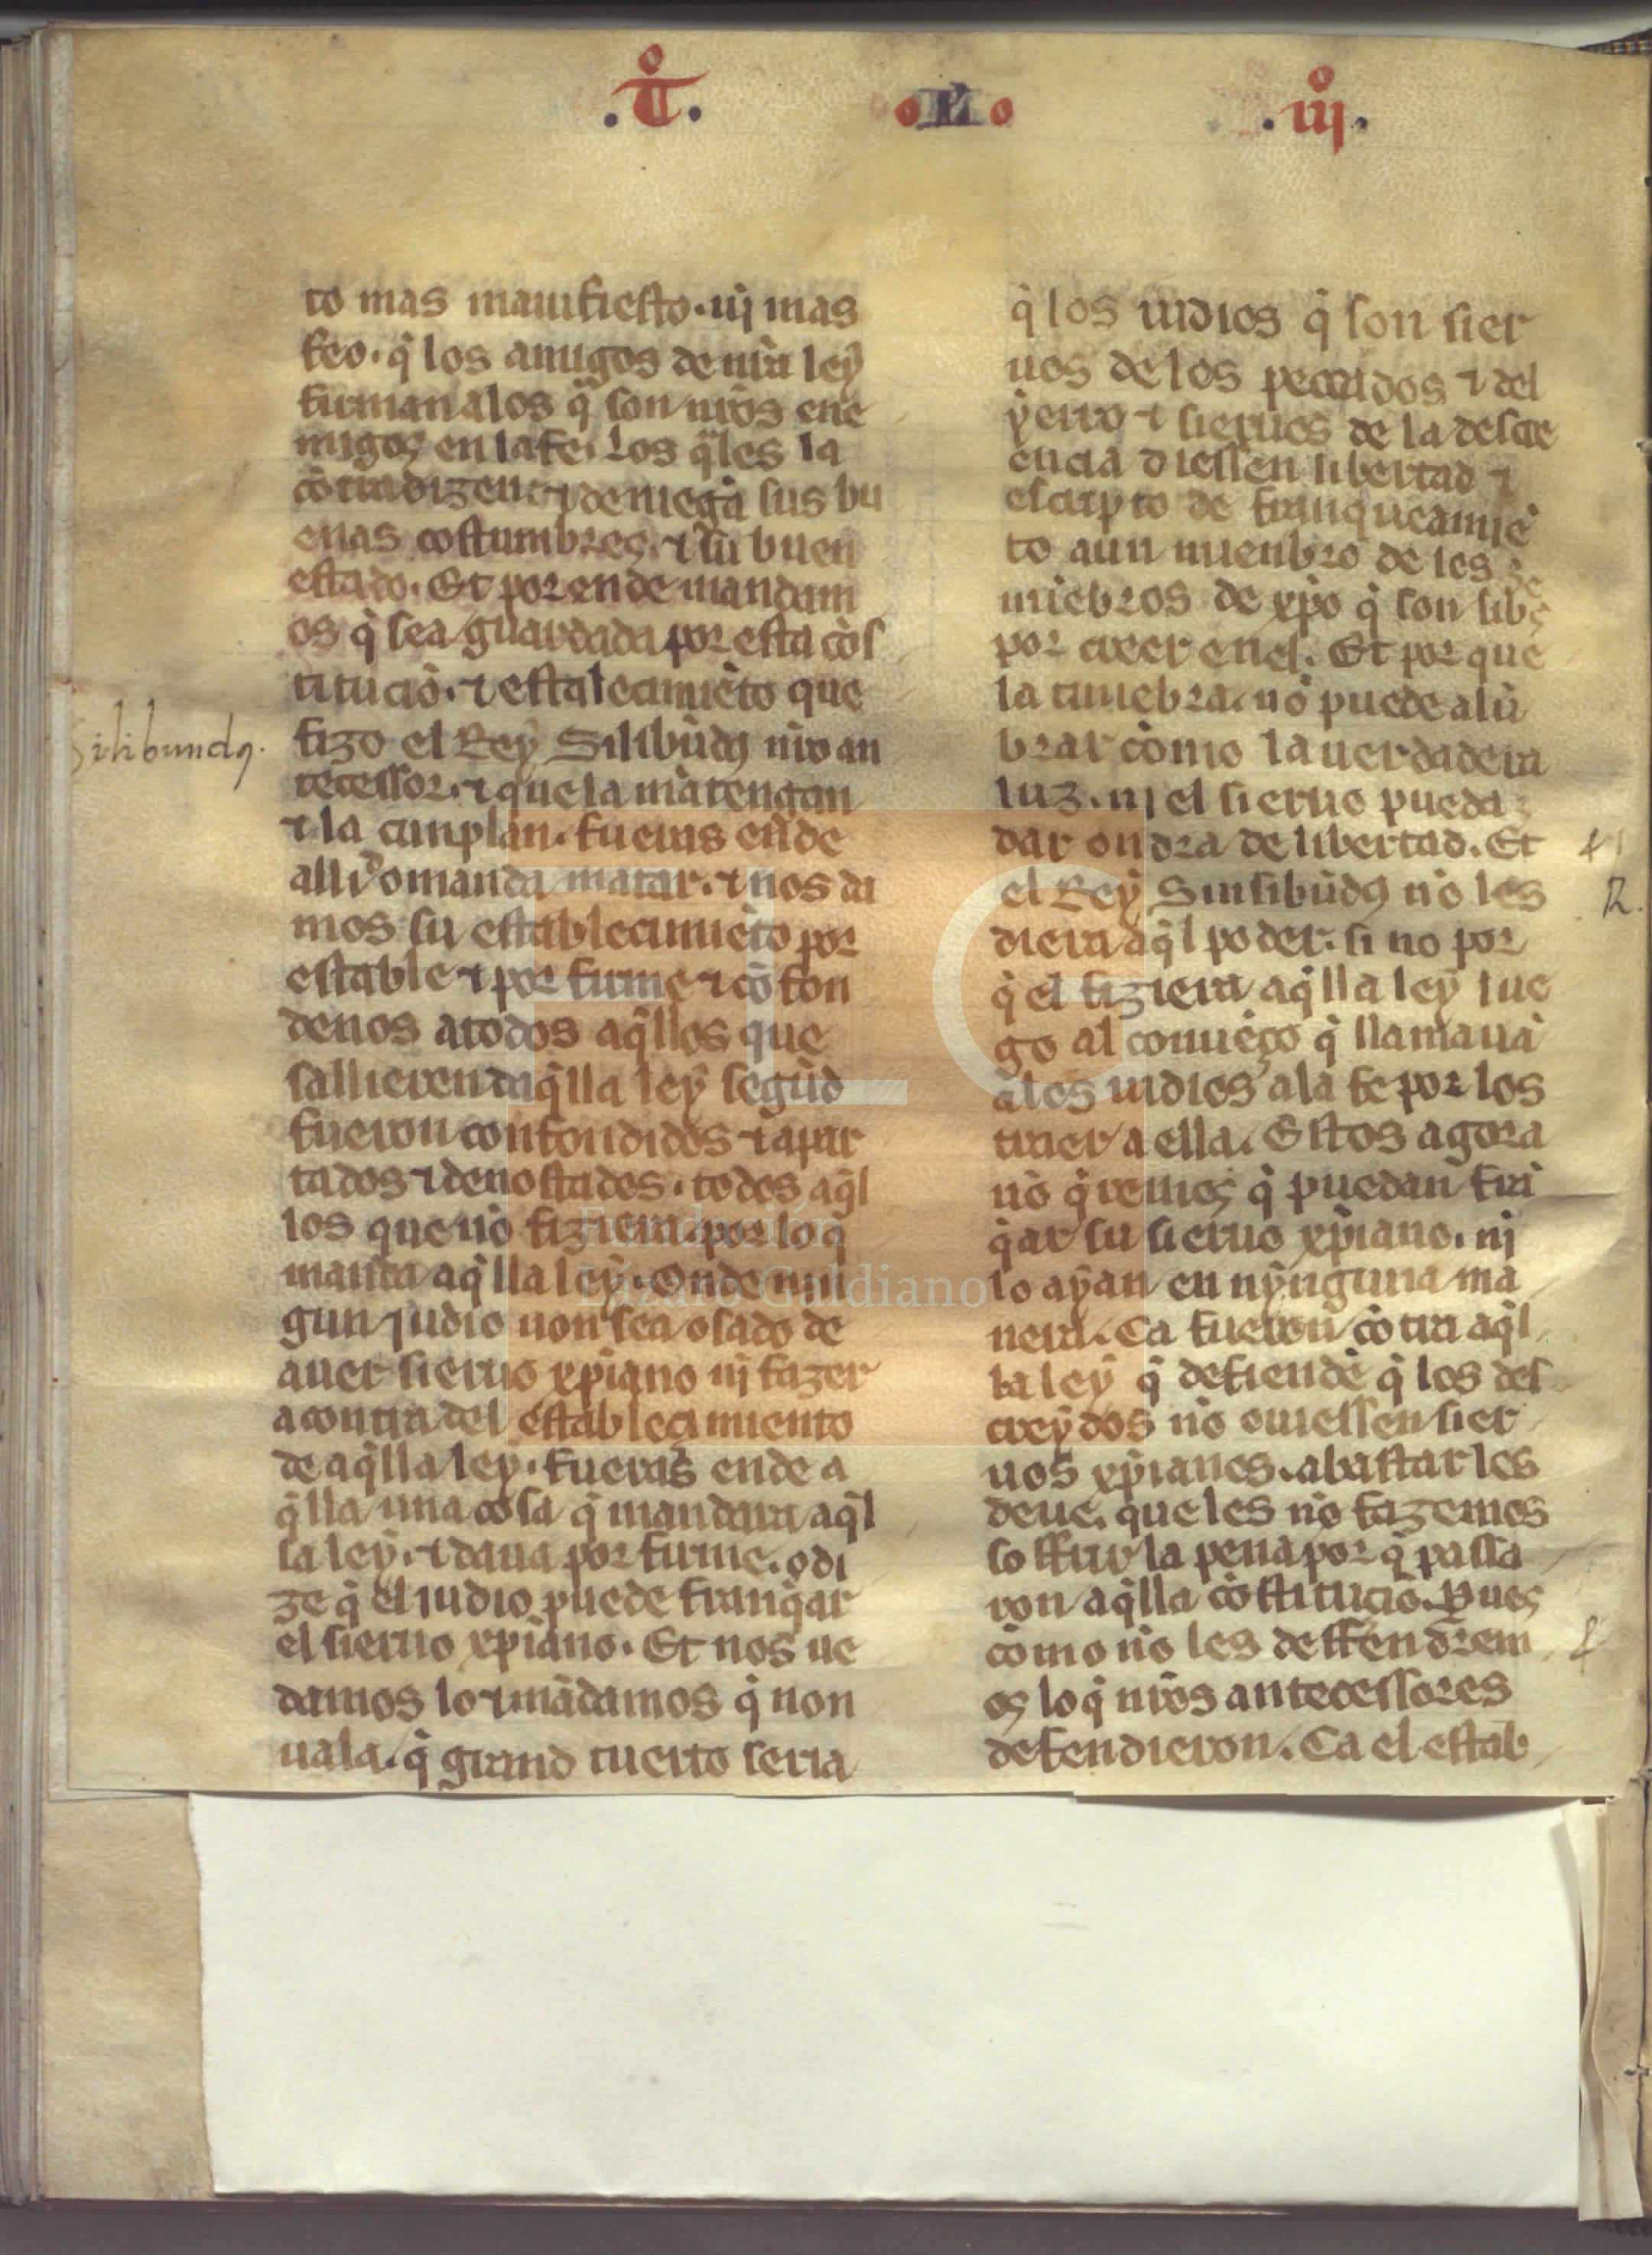 .t̊. .L. .iij̊.
to mas manifiesto. nj mas
feo. q̇ los amigos de nr̃a ley
firman alos q̃ son nr̃os ene
migos en la fe. los q̃les la
cõtradizen ⁊ deniegã sus bu
enas costumbres. ⁊ su buen
estado. Et por ende mandam
os q̇ sea guardada por esta cõs
titució. ⁊ estalecimiẽto que
fizo el Rey Silibũdꝯ nr̃o an
tecessor. ⁊ que la mãtengan
⁊ la cunplan. fueras ende
alli do manda matar. ⁊ nos da
mos su establecimiẽto por
estable ⁊ por firme ⁊ cõ fon
denos atodos aq̃llos que
sallieren daq̃lla ley segũd
fueron confondidos ⁊ apar
tados ⁊ denostados. todos aq̃l
los que nõ fizierã. por lo q̇
manda aq̃lla ley. Onde nin
gun judio non sea osado de
auer sieruo xp̃iano nj fazer
a contra del establecimiento
de aq̃lla ley. fueras ende a
q̃lla una cosa q̇ mandaua aq̃l
la ley. ⁊ daua por firme. o di
ze q̇ el judio puede franq̃ar
el sieruo xp̃iano. Et nos ue
damos lo ⁊ mãdamos q̇ non
uala. q̇ grand tuerto seria
Silibundꝯ.
q̇ los iudios q̇ son sier
uos delos peccados ⁊ del
yerro ⁊ sieruos de la descre
encia diessen libertad ⁊
escripto de franqueamiẽ
to aun mienbro de los
miẽbros de xp̃o q̇ son libres
por creer enel. Et por que
la tiniebra. nõ puede alũ
brar cõmo la uerdadera
luz. nj el sieruo pueda
dar ondra de libertad. Et
el Rey Sinsibũdꝯ nõ les
diera aq̃l poder. si no por
q̇ el fiziera aq̃lla ley lue
go al comiẽço q̇ llamauã
alos iudios ala fe por los
traer a ella. Estos agora
nõ q̃remos q̇ puedan frã
q̃ar su sieruo xp̃iano. nj
lo ayan en nynguna ma
nera. Ca fueron cõtra aq̃l
la ley q̇ defiende q̇ los des
creydos nõ ouiessen sier
uos xp̃ianos. abastar les
deue. que les nõ fazemos
soffrir la pena por q̇ passa
ron aq̃lla cõstitució. Pues
cõmo nõ les deffendrem
os lo q̇ nr̃os antecessores
defendieron. Ca el estab
Fundación
Lázaro Galdiano